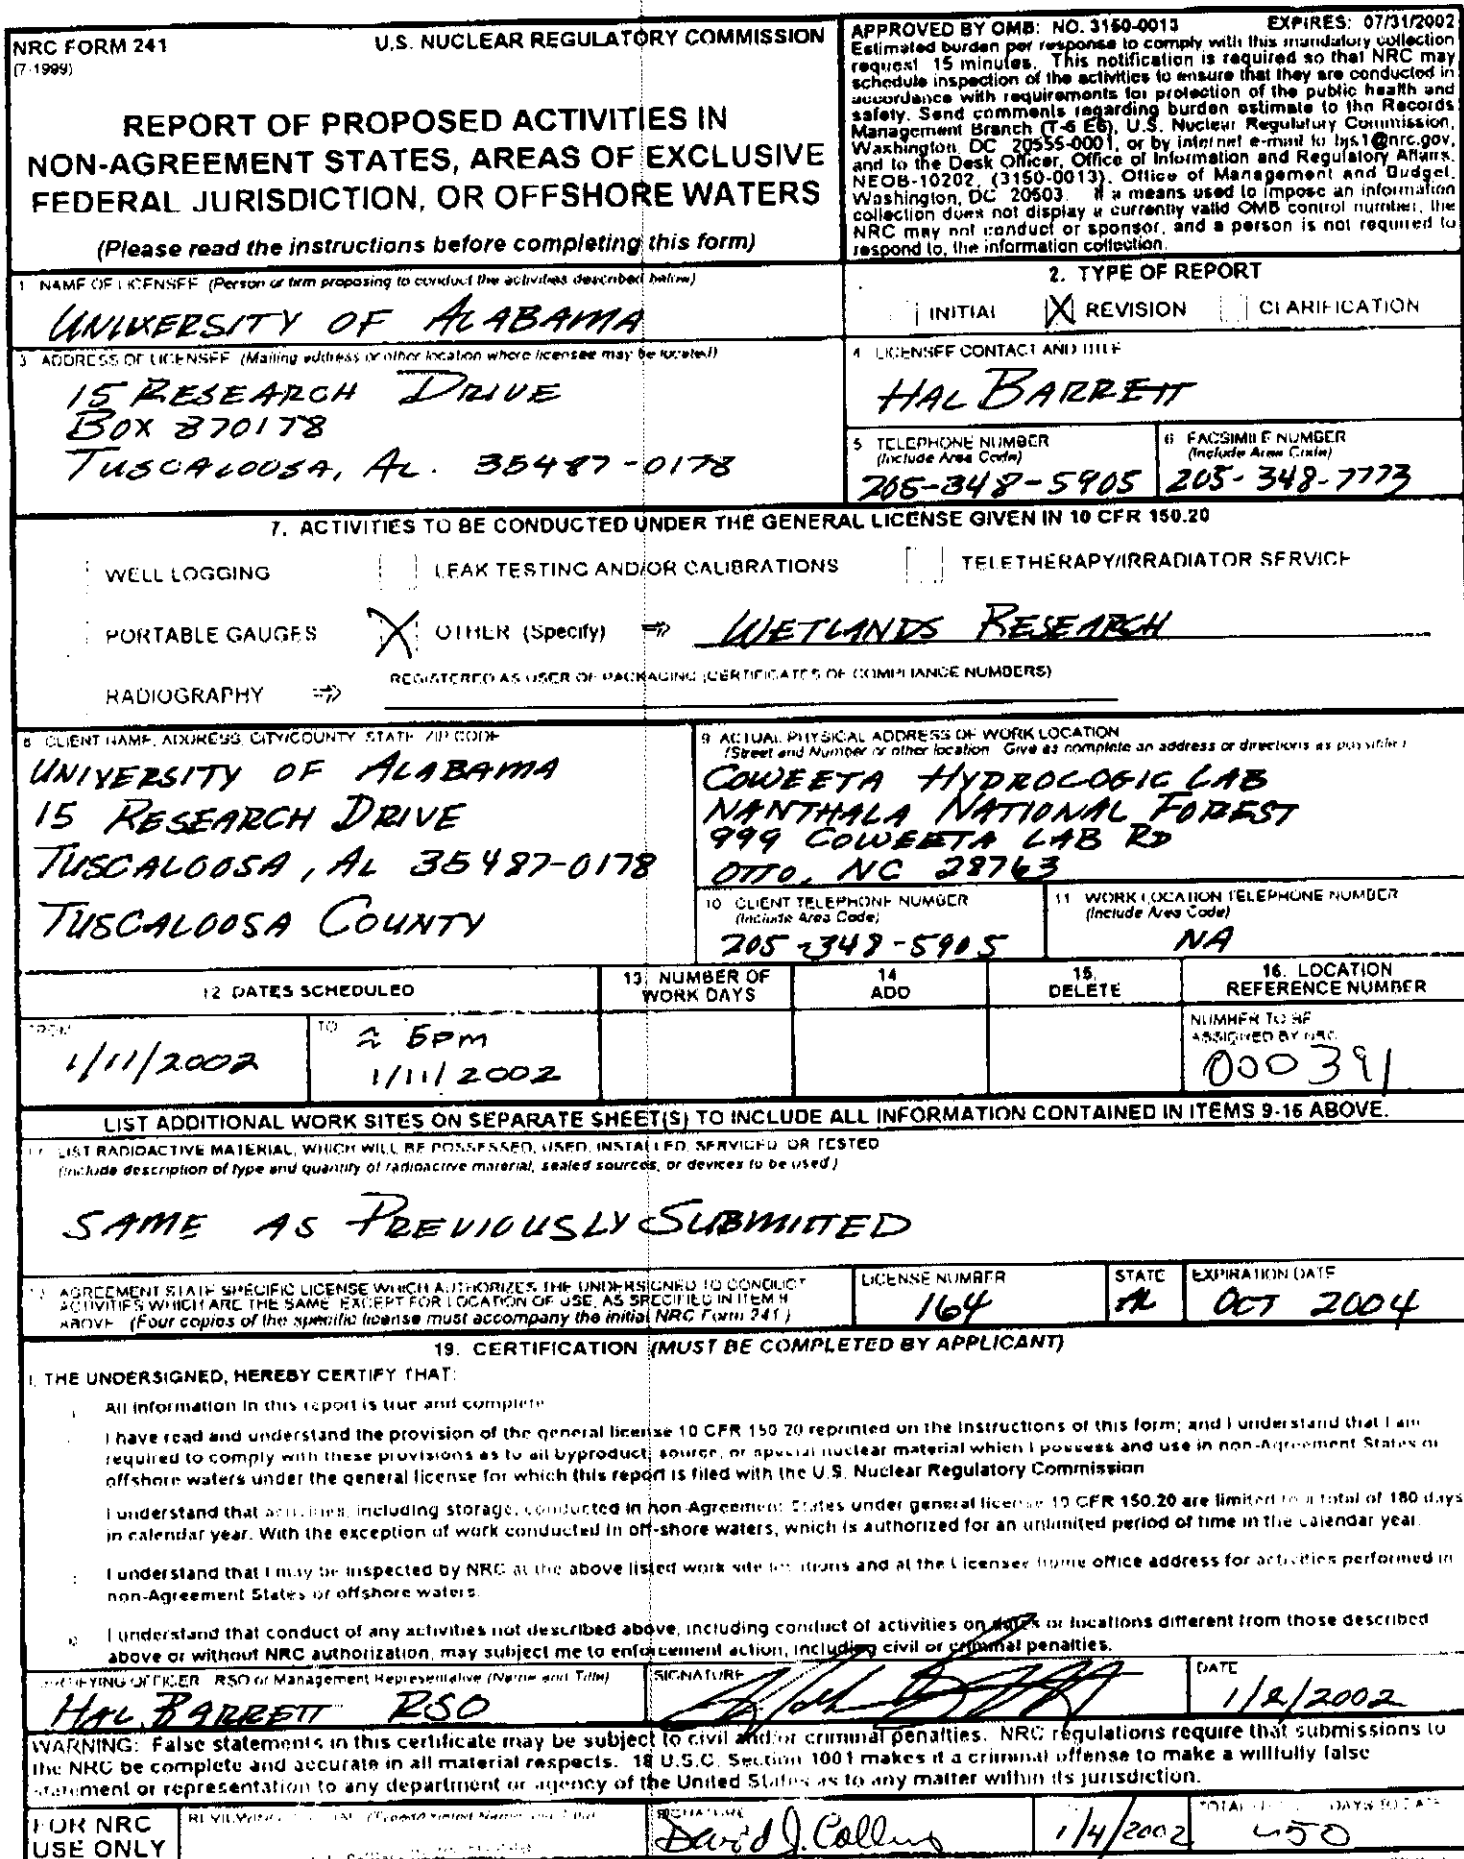 NRC FORM 241
(7-1999)
U.S. NUCLEAR REGULATORY COMMISSION
REPORT OF PROPOSED ACTIVITIES IN
NON-AGREEMENT STATES, AREAS OF EXCLUSIVE
FEDERAL JURISDICTION, OR OFFSHORE WATERS
(Please read the instructions before completing this form)
APPROVED BY OMB: NO. 3150-0013 EXPIRES: 07/31/2002
Estimated burden per response to comply with this mandatory collection
request 15 minutes. This notification is required so that NRC may
schedule inspection of the activities to ensure that they are conducted in
accordance with requirements for protection of the public health and
safety. Send comments regarding burden estimate to the Records
Management Branch (T-6 E6), U.S. Nuclear Regulatory Commission,
Washington, DC 20555-0001, or by internet e-mail to bjs1@nrc.gov,
and to the Desk Officer, Office of Information and Regulatory Affairs,
NEOB-10202, (3150-0013), Office of Management and Budget,
Washington, DC 20503. If a means used to impose an information
collection does not display a currently valid OMB control number, the
NRC may not conduct or sponsor, and a person is not required to
respond to, the information collection.
1 NAME OF LICENSEE (Person or firm proposing to conduct the activities described below)
UNIVERSITY OF ALABAMA
2. TYPE OF REPORT
INITIAL X REVISION CLARIFICATION
3 ADDRESS OF LICENSEE (Mailing address or other location where licensee may be located)
15 RESEARCH DRIVE
BOX 870178
TUSCALOOSA, AL. 35487-0178
4 LICENSEE CONTACT AND TITLE
HAL BARRETT
5 TELEPHONE NUMBER
(Include Area Code)
205-348-5905
6 FACSIMILE NUMBER
(Include Area Code)
205-348-7773
7. ACTIVITIES TO BE CONDUCTED UNDER THE GENERAL LICENSE GIVEN IN 10 CFR 150.20
WELL LOGGING LEAK TESTING AND/OR CALIBRATIONS TELETHERAPY/IRRADIATOR SERVICE
PORTABLE GAUGES X OTHER (Specify) ⇒ WETLANDS RESEARCH
REGISTERED AS USER OF PACKAGING (CERTIFICATES OF COMPLIANCE NUMBERS)
RADIOGRAPHY ⇒
8 CLIENT NAME, ADDRESS, CITY/COUNTY, STATE, ZIP CODE
UNIVERSITY OF ALABAMA
15 RESEARCH DRIVE
TUSCALOOSA, AL 35487-0178
TUSCALOOSA COUNTY
9 ACTUAL PHYSICAL ADDRESS OF WORK LOCATION
(Street and Number or other location Give as complete an address or directions as possible)
COWEETA HYDROLOGIC LAB
NANTHALA NATIONAL FOREST
999 COWEETA LAB RD
OTTO, NC 28763
10 CLIENT TELEPHONE NUMBER
(Include Area Code)
205-348-5905
11 WORK LOCATION TELEPHONE NUMBER
(Include Area Code)
NA
12 DATES SCHEDULED
13. NUMBER OF
WORK DAYS
14
ADD
15.
DELETE
16. LOCATION
REFERENCE NUMBER
FROM
1/11/2002
TO
~ 5pm
1/11/2002
NUMBER TO BE
ASSIGNED BY NRC
000391
LIST ADDITIONAL WORK SITES ON SEPARATE SHEET(S) TO INCLUDE ALL INFORMATION CONTAINED IN ITEMS 9-16 ABOVE.
LIST RADIOACTIVE MATERIAL, WHICH WILL BE POSSESSED, USED, INSTALLED, SERVICED, OR TESTED
(Include description of type and quantity of radioactive material, sealed sources, or devices to be used)
SAME AS PREVIOUSLY SUBMITTED
AGREEMENT STATE SPECIFIC LICENSE WHICH AUTHORIZES THE UNDERSIGNED TO CONDUCT
ACTIVITIES WHICH ARE THE SAME, EXCEPT FOR LOCATION OF USE, AS SPECIFIED IN ITEM 8
ABOVE (Four copies of the specific license must accompany the initial NRC Form 241)
LICENSE NUMBER
164
STATE
AL
EXPIRATION DATE
OCT 2004
19. CERTIFICATION (MUST BE COMPLETED BY APPLICANT)
I, THE UNDERSIGNED, HEREBY CERTIFY THAT:
All information in this report is true and complete
I have read and understand the provision of the general license 10 CFR 150 20 reprinted on the instructions of this form; and I understand that I am
required to comply with these provisions as to all byproduct, source, or special nuclear material which I possess and use in non-Agreement States or
offshore waters under the general license for which this report is filed with the U.S. Nuclear Regulatory Commission
I understand that activities, including storage, conducted in non-Agreement States under general license 10 CFR 150.20 are limited to a total of 180 days
in calendar year. With the exception of work conducted in off-shore waters, which is authorized for an unlimited period of time in the calendar year.
I understand that I may be inspected by NRC at the above listed work site locations and at the Licensee home office address for activities performed in
non-Agreement States or offshore waters.
I understand that conduct of any activities not described above, including conduct of activities on dates or locations different from those described
above or without NRC authorization, may subject me to enforcement action, including civil or criminal penalties.
CERTIFYING OFFICER RSO or Management Representative (Name and Title)
HAL BARRETT RSO
SIGNATURE
DATE
1/2/2002
WARNING: False statements in this certificate may be subject to civil and/or criminal penalties. NRC regulations require that submissions to
the NRC be complete and accurate in all material respects. 18 U.S.C. Section 1001 makes it a criminal offense to make a willfully false
statement or representation to any department or agency of the United States as to any matter within its jurisdiction.
FOR NRC
USE ONLY
SIGNATURE
David J. Collins
1/4/2002
TOTAL DAYS TO DATE